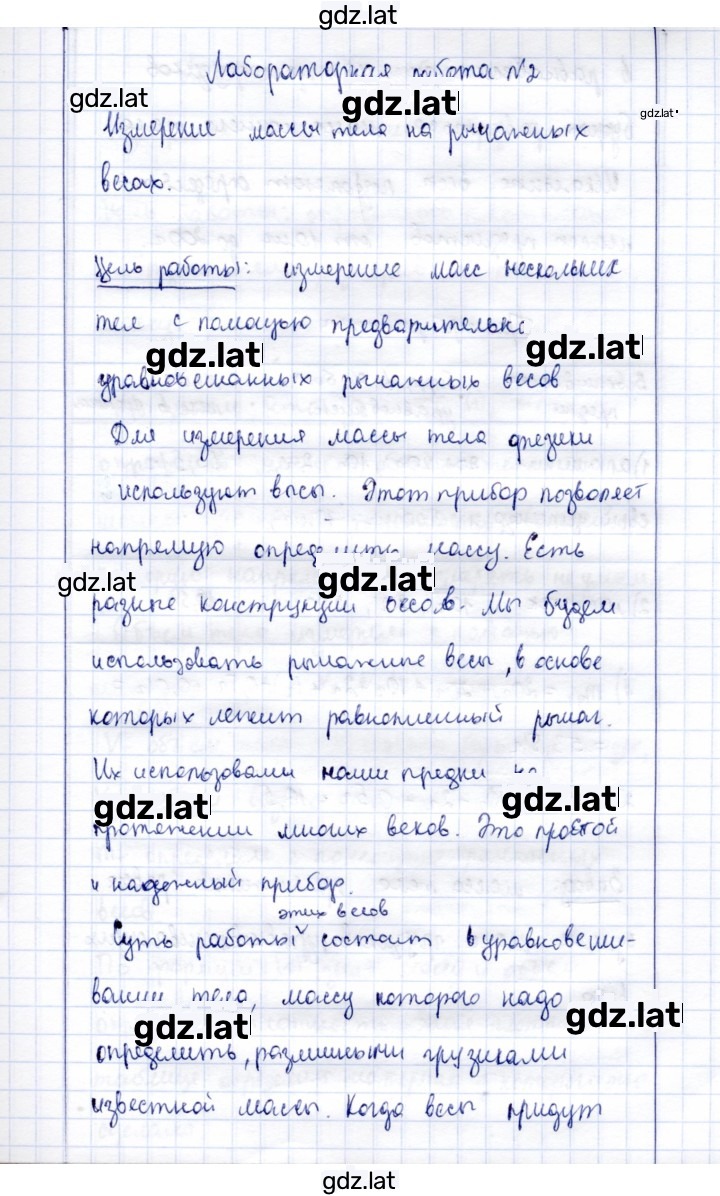 gdz.lat
Лабораторная работа №2
gdz.lat gdz.lat gdz.lat
Измерение массы тела на рычажных
весах.
Цель работы: измерение масс нескольких
тел с помощью предварительно
gdz.lat gdz.lat
уравновешанных рычажных весов
Для измерения массы тела физики
используют весы. Этот прибор позволяет
напрямую определить массу. Есть
gdz.lat gdz.lat
разные конструкции весов. Мы будем
использовать рычажные весы, в основе
которых лежит равноплечный рычаг.
Их использовали наши предки на
gdz.lat gdz.lat
протяжении многих веков. Это простой
и надежный прибор.
этих весов
Суть работы состоит в уравновеши-
вании тела, массу которого надо
gdz.lat gdz.lat
определить, различными грузиками
известной массы. Когда весы придут
gdz.lat